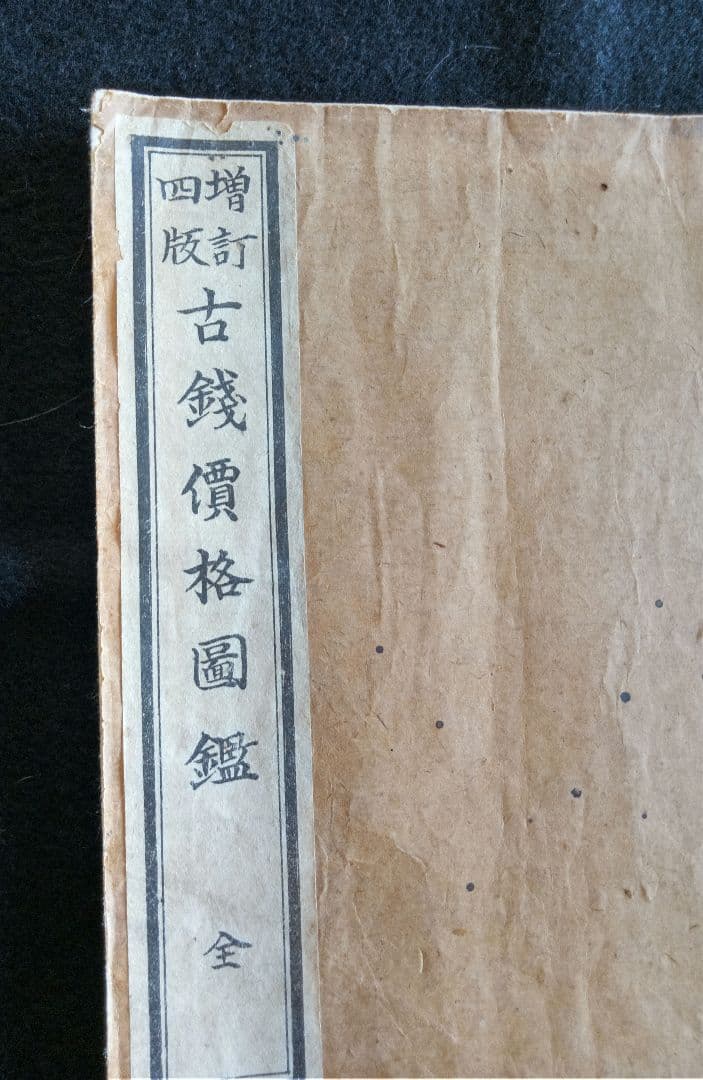 増訂
四版
古錢價格圖鑑
全